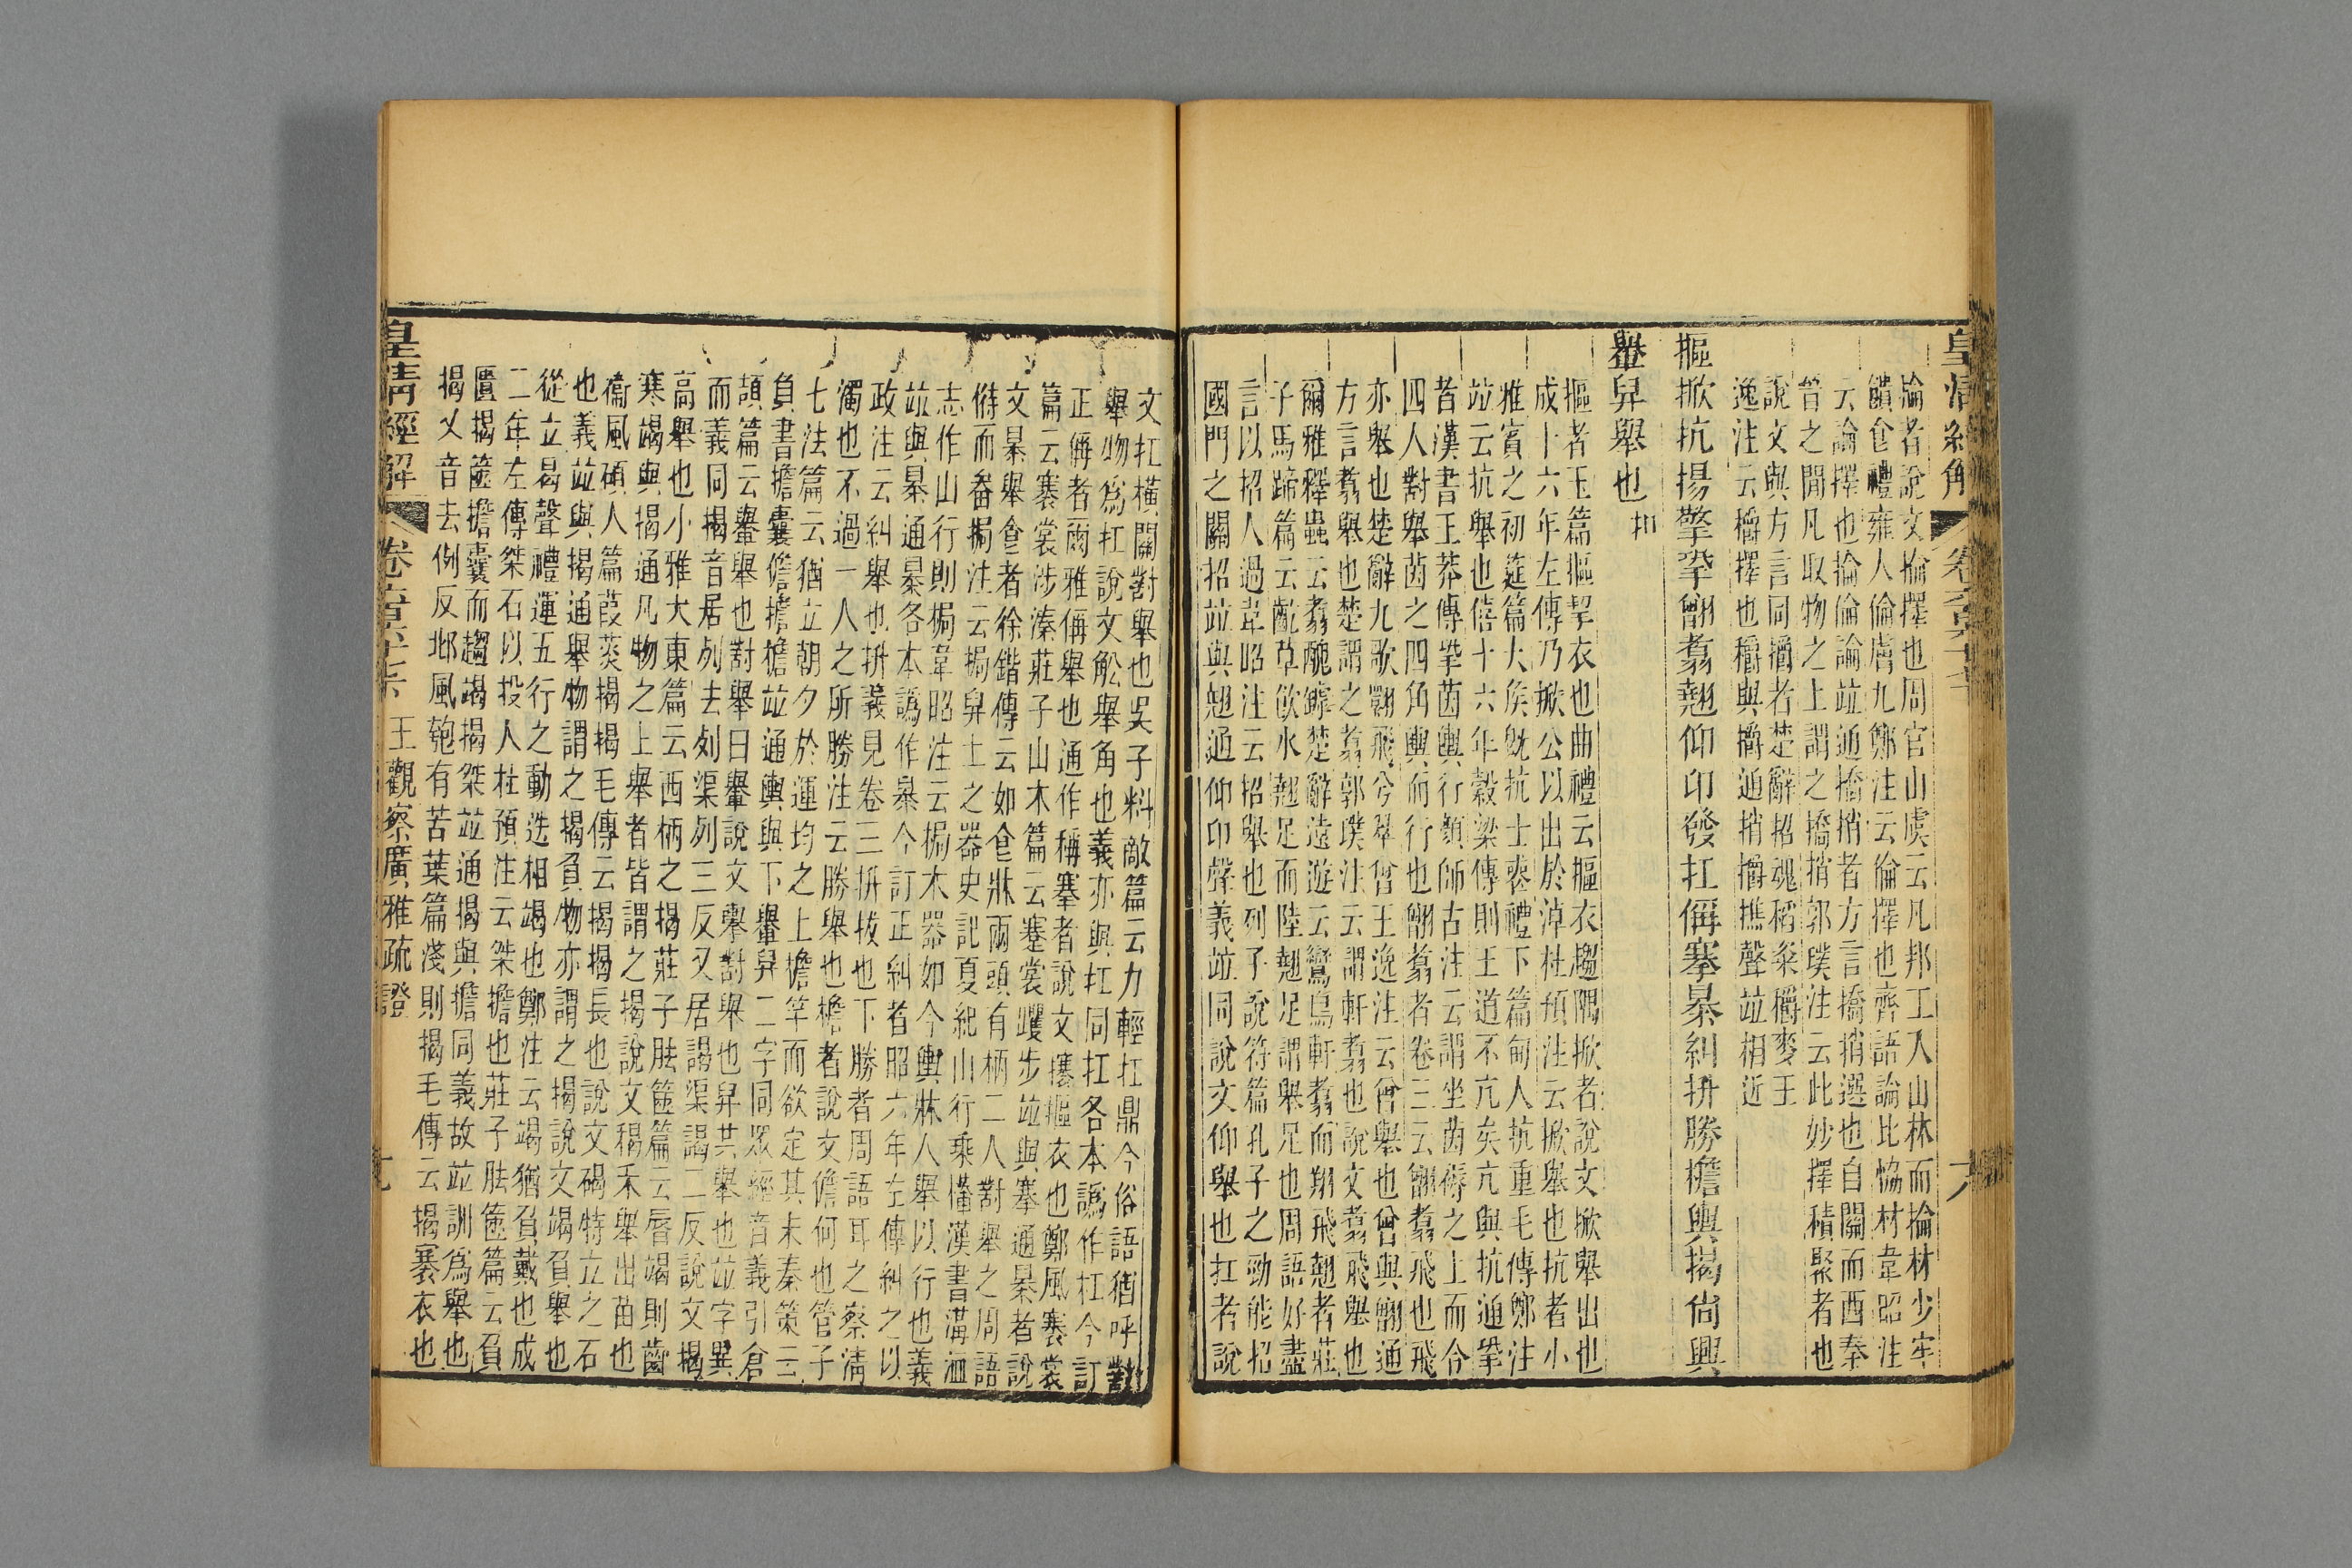 掄者說文掄擇也周官山虞云凡邦工入山林而掄材少牢
饋食禮雍人倫膚九鄭注云倫擇也齊語論比協材韋昭注
云論擇也掄倫論竝通撟捎者方言撟捎選也自關而西秦
晉之閒凡取物之上謂之撟捎郭璞注云此妙擇積聚者也
說文與方言同㩱者楚辭招魂稻粢穱麥王
逸注云穱擇也穱與㩱通捎㩱撨聲竝相近
摳掀抗揚擎㧬翿翥翹仰卬發扛偁搴暴糾拼勝檐輿揭尙興
舉舁舉也
摳者玉篇摳挈衣也曲禮云摳衣趨隅掀者說文掀舉出也
成十六年左傳乃掀公以出於淖杜預注云掀舉也抗者小
雅賓之初筵篇大侯旣抗士喪禮下篇甸人抗重毛傳鄭注
竝云抗舉也僖十六年穀梁傳則王道不亢矣亢與抗通㧬
者漢書王莽傳㧬茵輿行顏師古注云謂坐茵褥之上而令
四人對舉茵之四角輿而行也翿翥者卷三云翿翥飛也飛
亦舉也楚辭九歌翾飛兮翠曾王逸注云曾舉也曾與翿通
方言翥舉也楚謂之翥郭璞注云謂軒翥也說文翥飛舉也
爾雅釋蟲云翥醜罅楚辭遠遊云鸞鳥軒翥而翔飛翹者莊
子馬蹄篇云齕草飮水翹足而陸翹足謂舉足也周語好盡
言以招人過韋昭注云招舉也列子說符篇孔子之勁能招
國門之關招竝與翹通仰卬聲義竝同說文仰舉也扛者說
皇淸經解
文扛橫關對舉也吳子料敵篇云力輕扛鼎今俗語猶呼對
舉物爲扛說文舩舉角也義亦與扛同扛各本譌作杠今訂
正偁者爾雅偁舉也通作稱搴者說文攐摳衣也鄭風褰裳
篇云褰裳涉溱莊子山木篇云蹇裳躩步竝與搴通暴者說
文暴舉食者徐鍇傳云如食牀兩頭有柄二人對舉之周語
偫而畚挶注云挶舁土之器史記夏紀山行乘檋漢書溝洫
志作山行則梮韋昭注云梮木器如今輿牀人舉以行也義
竝與暴通暴各本譌作暴今訂正糾者昭六年左傳糾之以
政注云糾舉也拼義見卷三拼拔也下勝者周語耳之察淸
濁也不過一人之所勝注云勝舉也檐者說文儋何也管子
七法篇云猶立朝夕於運均之上檐竿而欲定其末秦策云
負書擔囊儋擔檐竝通輿與下轝舁二字同眾經音義引倉
頡篇云轝舉也對舉曰轝說文擧對舉也舁共舉也竝字異
而義同揭音居列去列渠列三反又居謁渠謁二反說文揭
高舉也小雅大東篇云西柄之揭莊子胠篋篇云唇竭則齒
寒竭與揭通凡物之上舉者皆謂之揭說文稭禾舉出苗也
衞風碩人篇葭菼揭揭毛傳云揭揭長也說文碣特立之石
也義竝與揭通舉物謂之揭負物亦謂之揭說文竭負舉也
從立曷聲禮運五行之動迭相竭也鄭注云竭猶負戴也成
二年左傳桀石以投人杜預注云桀擔也莊子胠篋篇云負
匱揭篋擔囊而趨竭揭桀竝通揭與擔同義故竝訓爲舉也
揭又音去例反邶風匏有苦葉篇淺則揭毛傳云揭褰衣也
皇淸經解 王觀察廣雅疏證